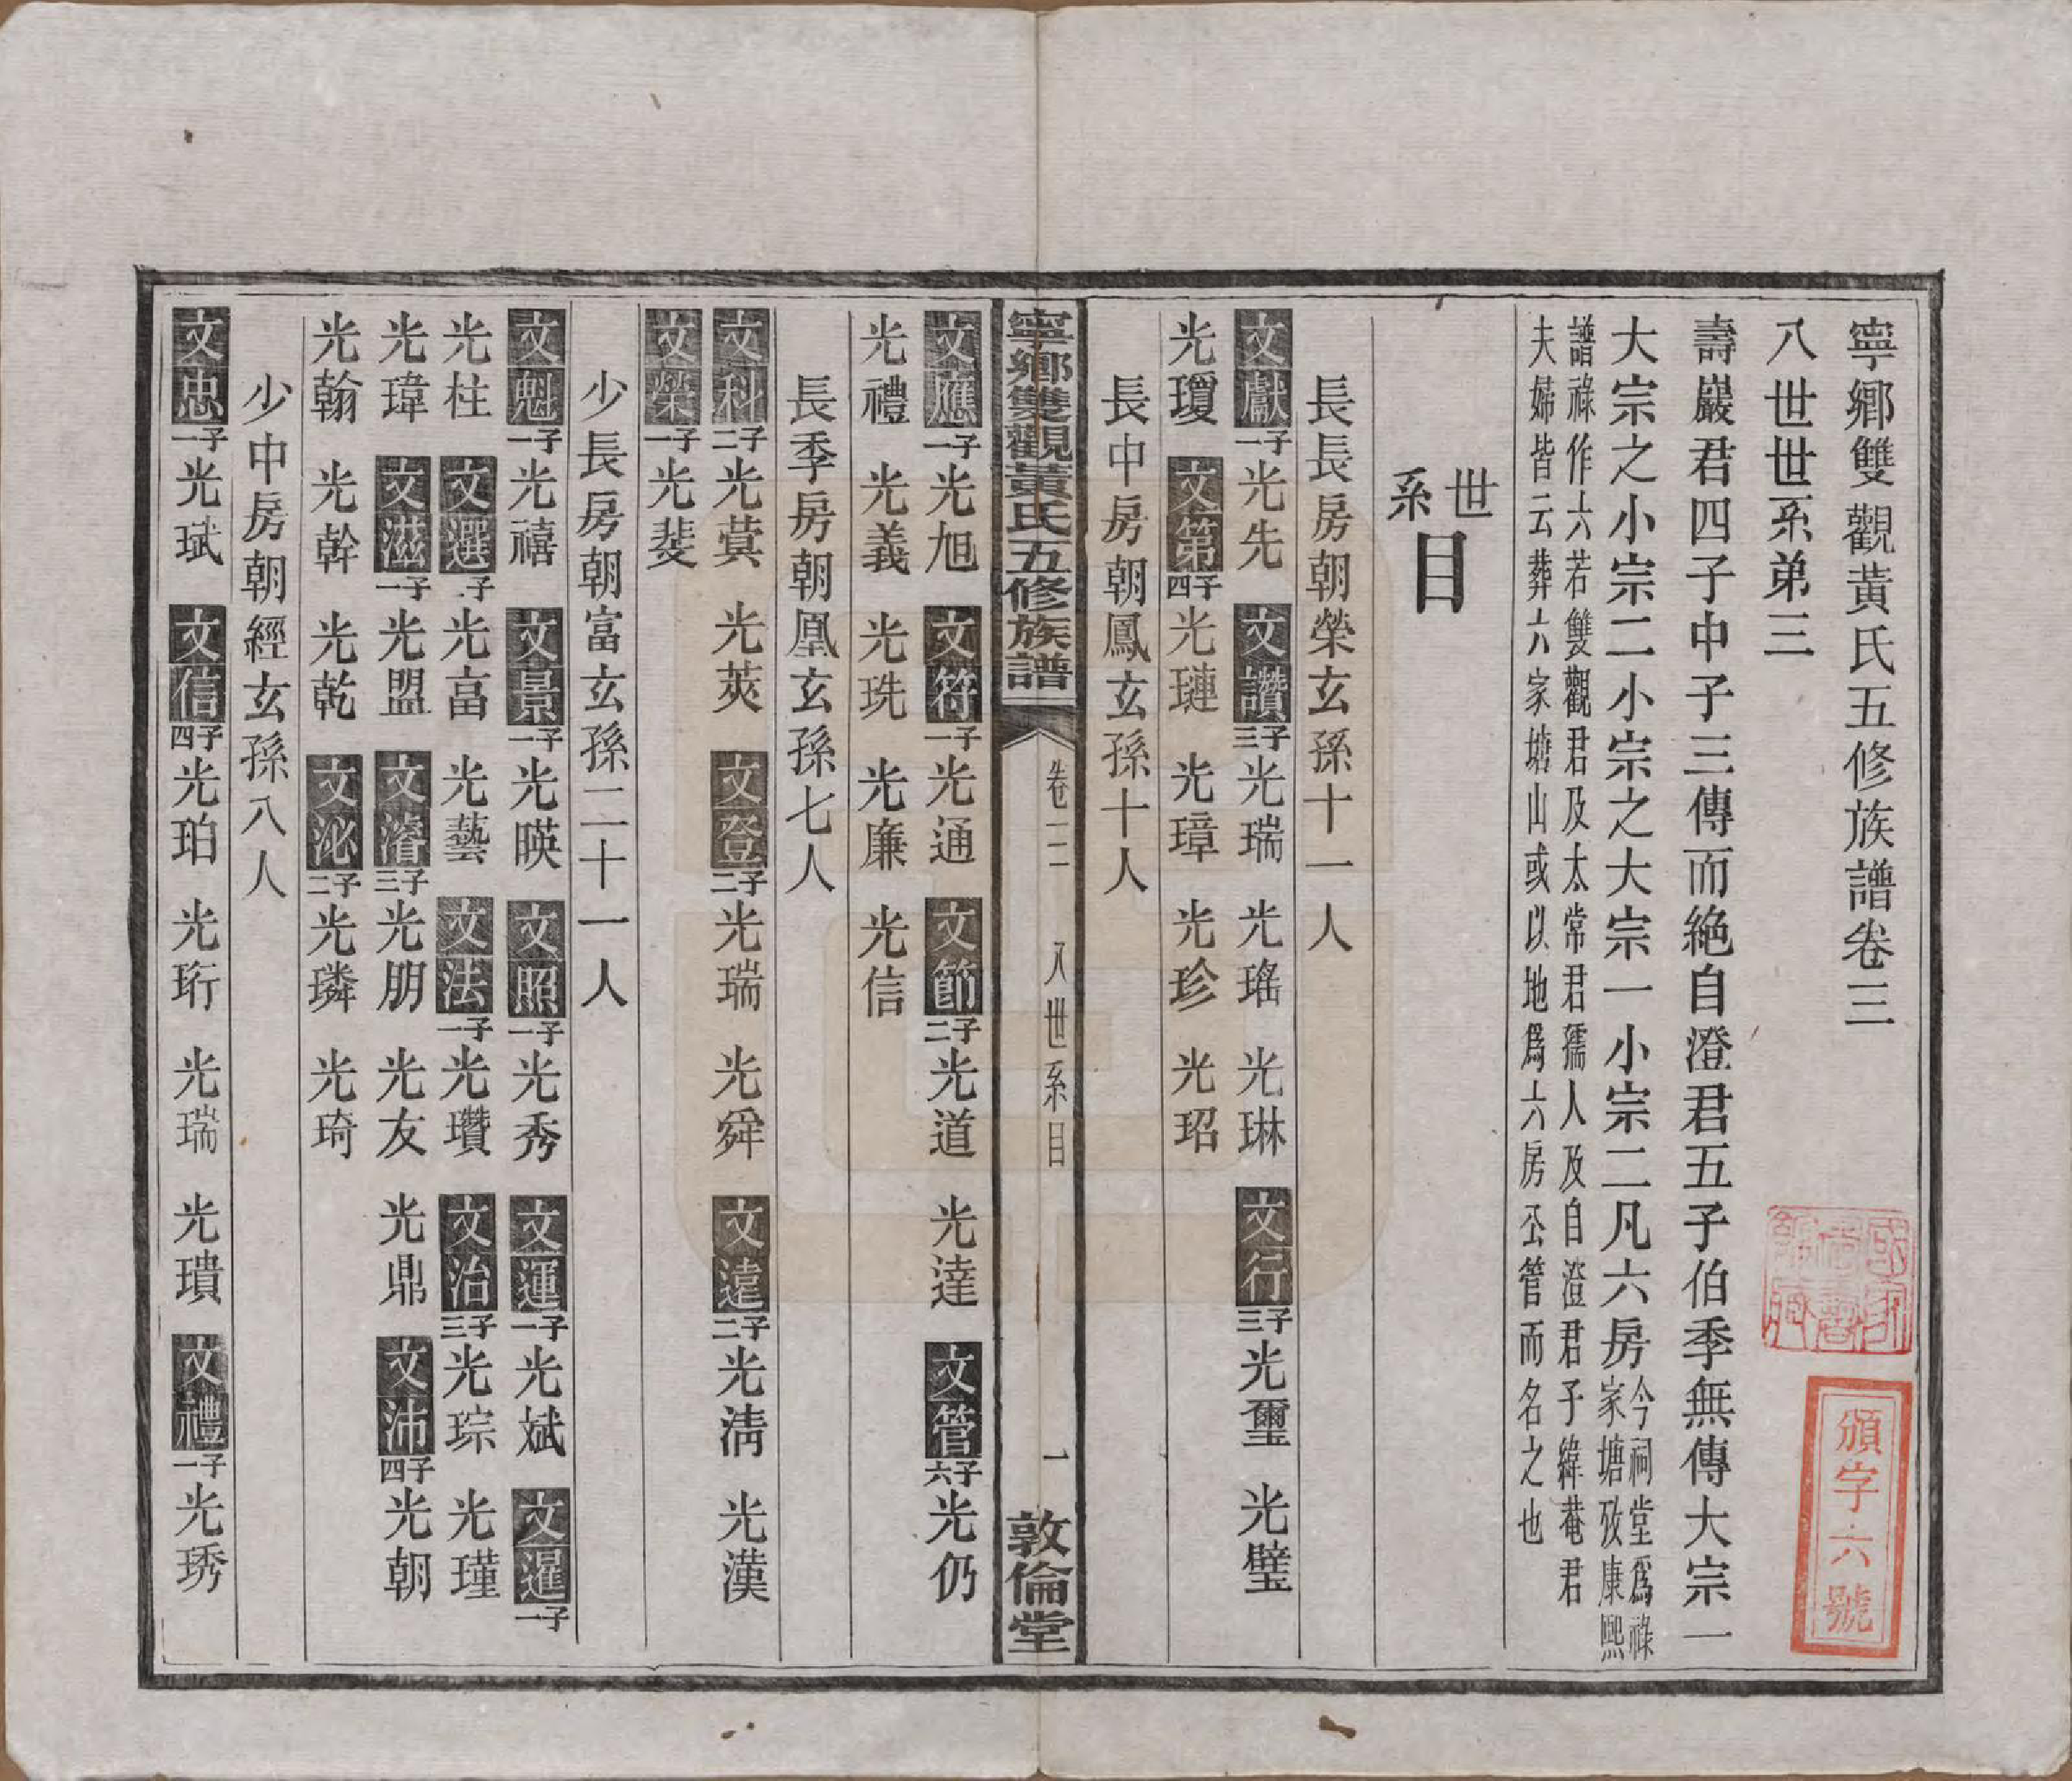 寧鄉雙觀黃氏五修族譜卷三
八世世系弟三
壽巖君四子中子三傳而絶自澄君五子伯季無傳大宗一
大宗之小宗二小宗之大宗一小宗二凡六房今祠堂爲祿家塘攷康熙
譜祿作六若雙觀君及太常君孺人及自澄君子緯菴君
夫婦皆云葬六家塘山或以地爲六房公管而名之也
世系目
長長房朝榮玄孫十一人
文獻一子光先 文讚三子光瑞 光瑤 光琳 文行三子光璽 光璧
光瓊 文第四子光璉 光璋 光珍 光玿
長中房朝鳳玄孫十人
寧鄉雙觀黃氏五修族譜 卷三 八世系目 一 敦倫堂
文應一子光旭 文符一子光通 文節二子光道 光達 文管六子光仍
光禮 光義 光珗 光廉 光信
長季房朝凰玄孫七人
文科二子光蓂 光莢 文登二子光瑞 光舜 文遠二子光淸 光漢
文榮一子光斐
少長房朝富玄孫二十一人
文魁一子光禧 文景一子光暎 文照一子光秀 文運一子光斌 文暹一子
光柱 文選二子光富 光藝 文法一子光瓚 文治三子光琮 光瑾
光瑋 文滋一子光盟 文濬三子光朋 光友 光鼎 文沛四子光朝
光翰 光幹 光乾 文泌二子光璘 光琦
少中房朝經玄孫八人
文忠一子光珷 文信四子光珀 光珩 光瑞 光璝 文禮一子光琇
頒字六號